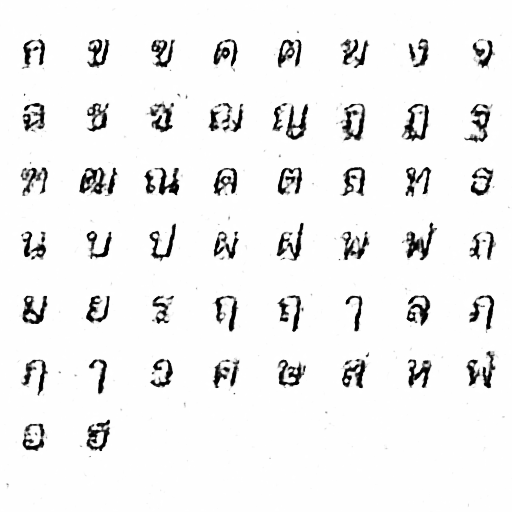 ก ข ฃ ค ฅ ฆ ง จ
ฉ ช ซ ฌ ญ ฎ ฏ ฐ
ฑ ฒ ณ ด ต ถ ท ธ
น บ ป ผ ฝ พ ฟ ภ
ม ย ร ฤ ฤ า ล ภ
ฦ ว ศ ษ ส ห ฬ
อ ฮ